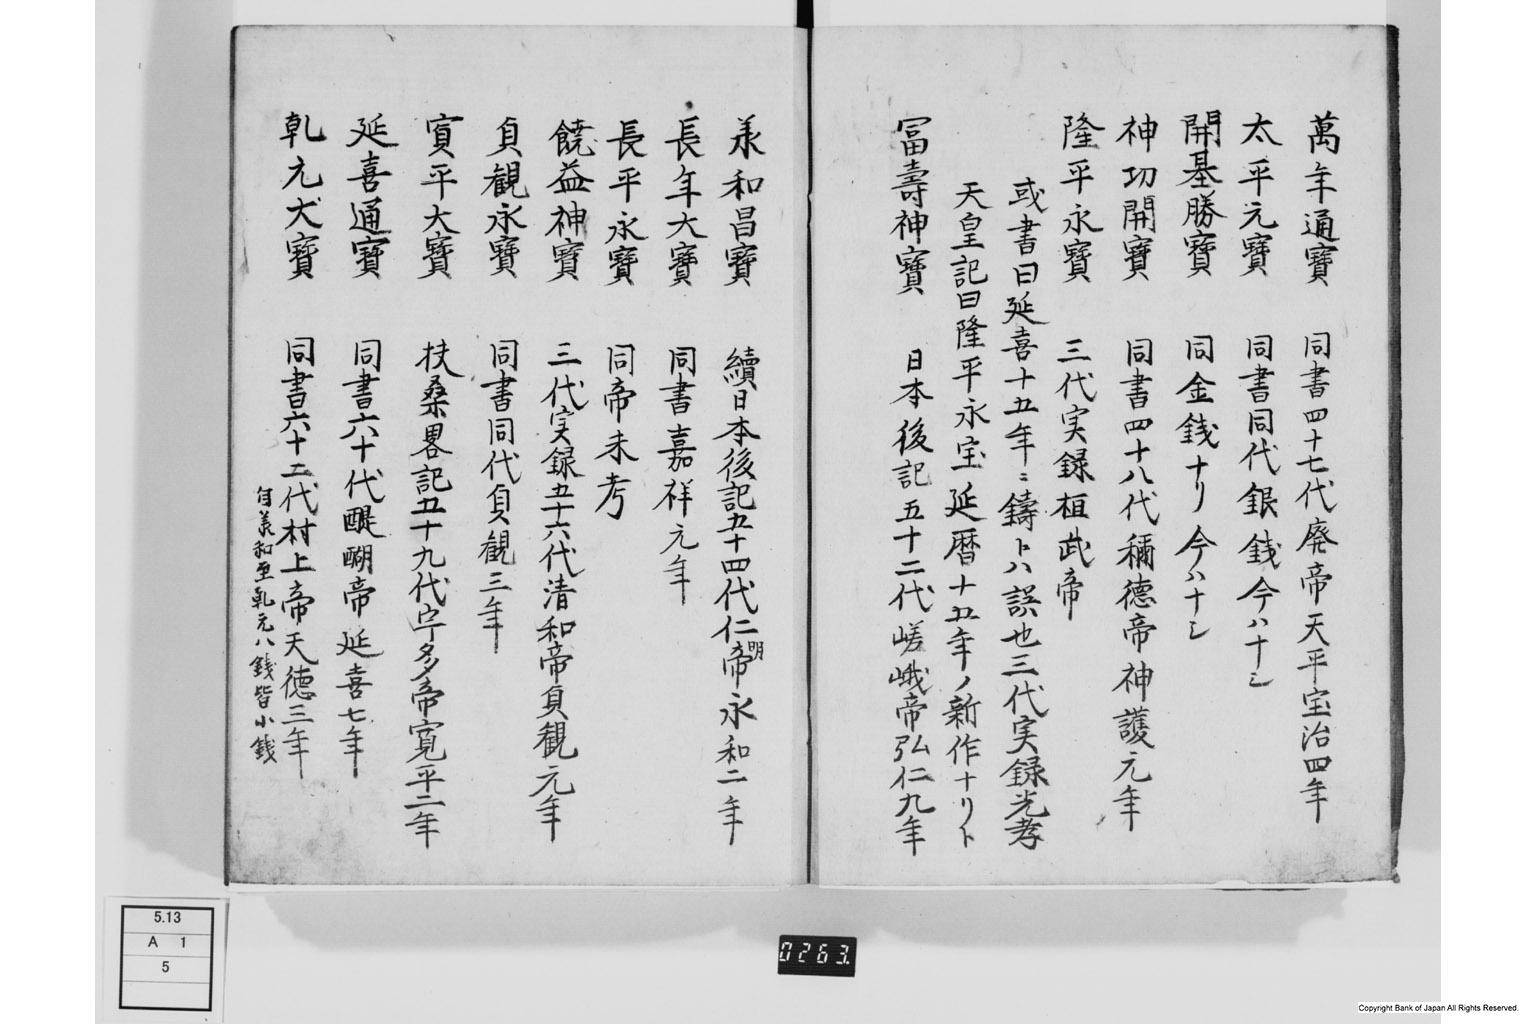 萬年通寳 同書四十七代廃帝天平宝治四年
太平元寳 同書同代銀銭今ハナシ
開基勝寳 同金銭ナリ今ハナシ
神功開寳 同書四十八代稱德帝神護元年
隆平永寳 三代実録桓武帝
或書曰延喜十五年ニ鑄トハ誤也三代実録光孝
天皇記曰隆平永宝延暦十五年ノ新作ナリト
冨壽神寳 日本後記五十二代嵯峨帝弘仁九年
承和昌寳 續日本後記五十四代仁明帝永和二年
長年大寳 同書嘉祥元年
長平永寳 同帝未考
饒益神寳 三代実録五十六代清和帝貞観元年
貞観永寳 同書同代貞観三年
寛平大寳 扶桑畧記五十九代宇多帝寛平二年
延喜通寳 同書六十代醍醐帝延喜七年
乹元大寳 同書六十二代村上帝天德三年
自承和至乹元八銭皆小銭
5.13
A 1
5
0263.
Copyright Bank of Japan All Rights Reserved.